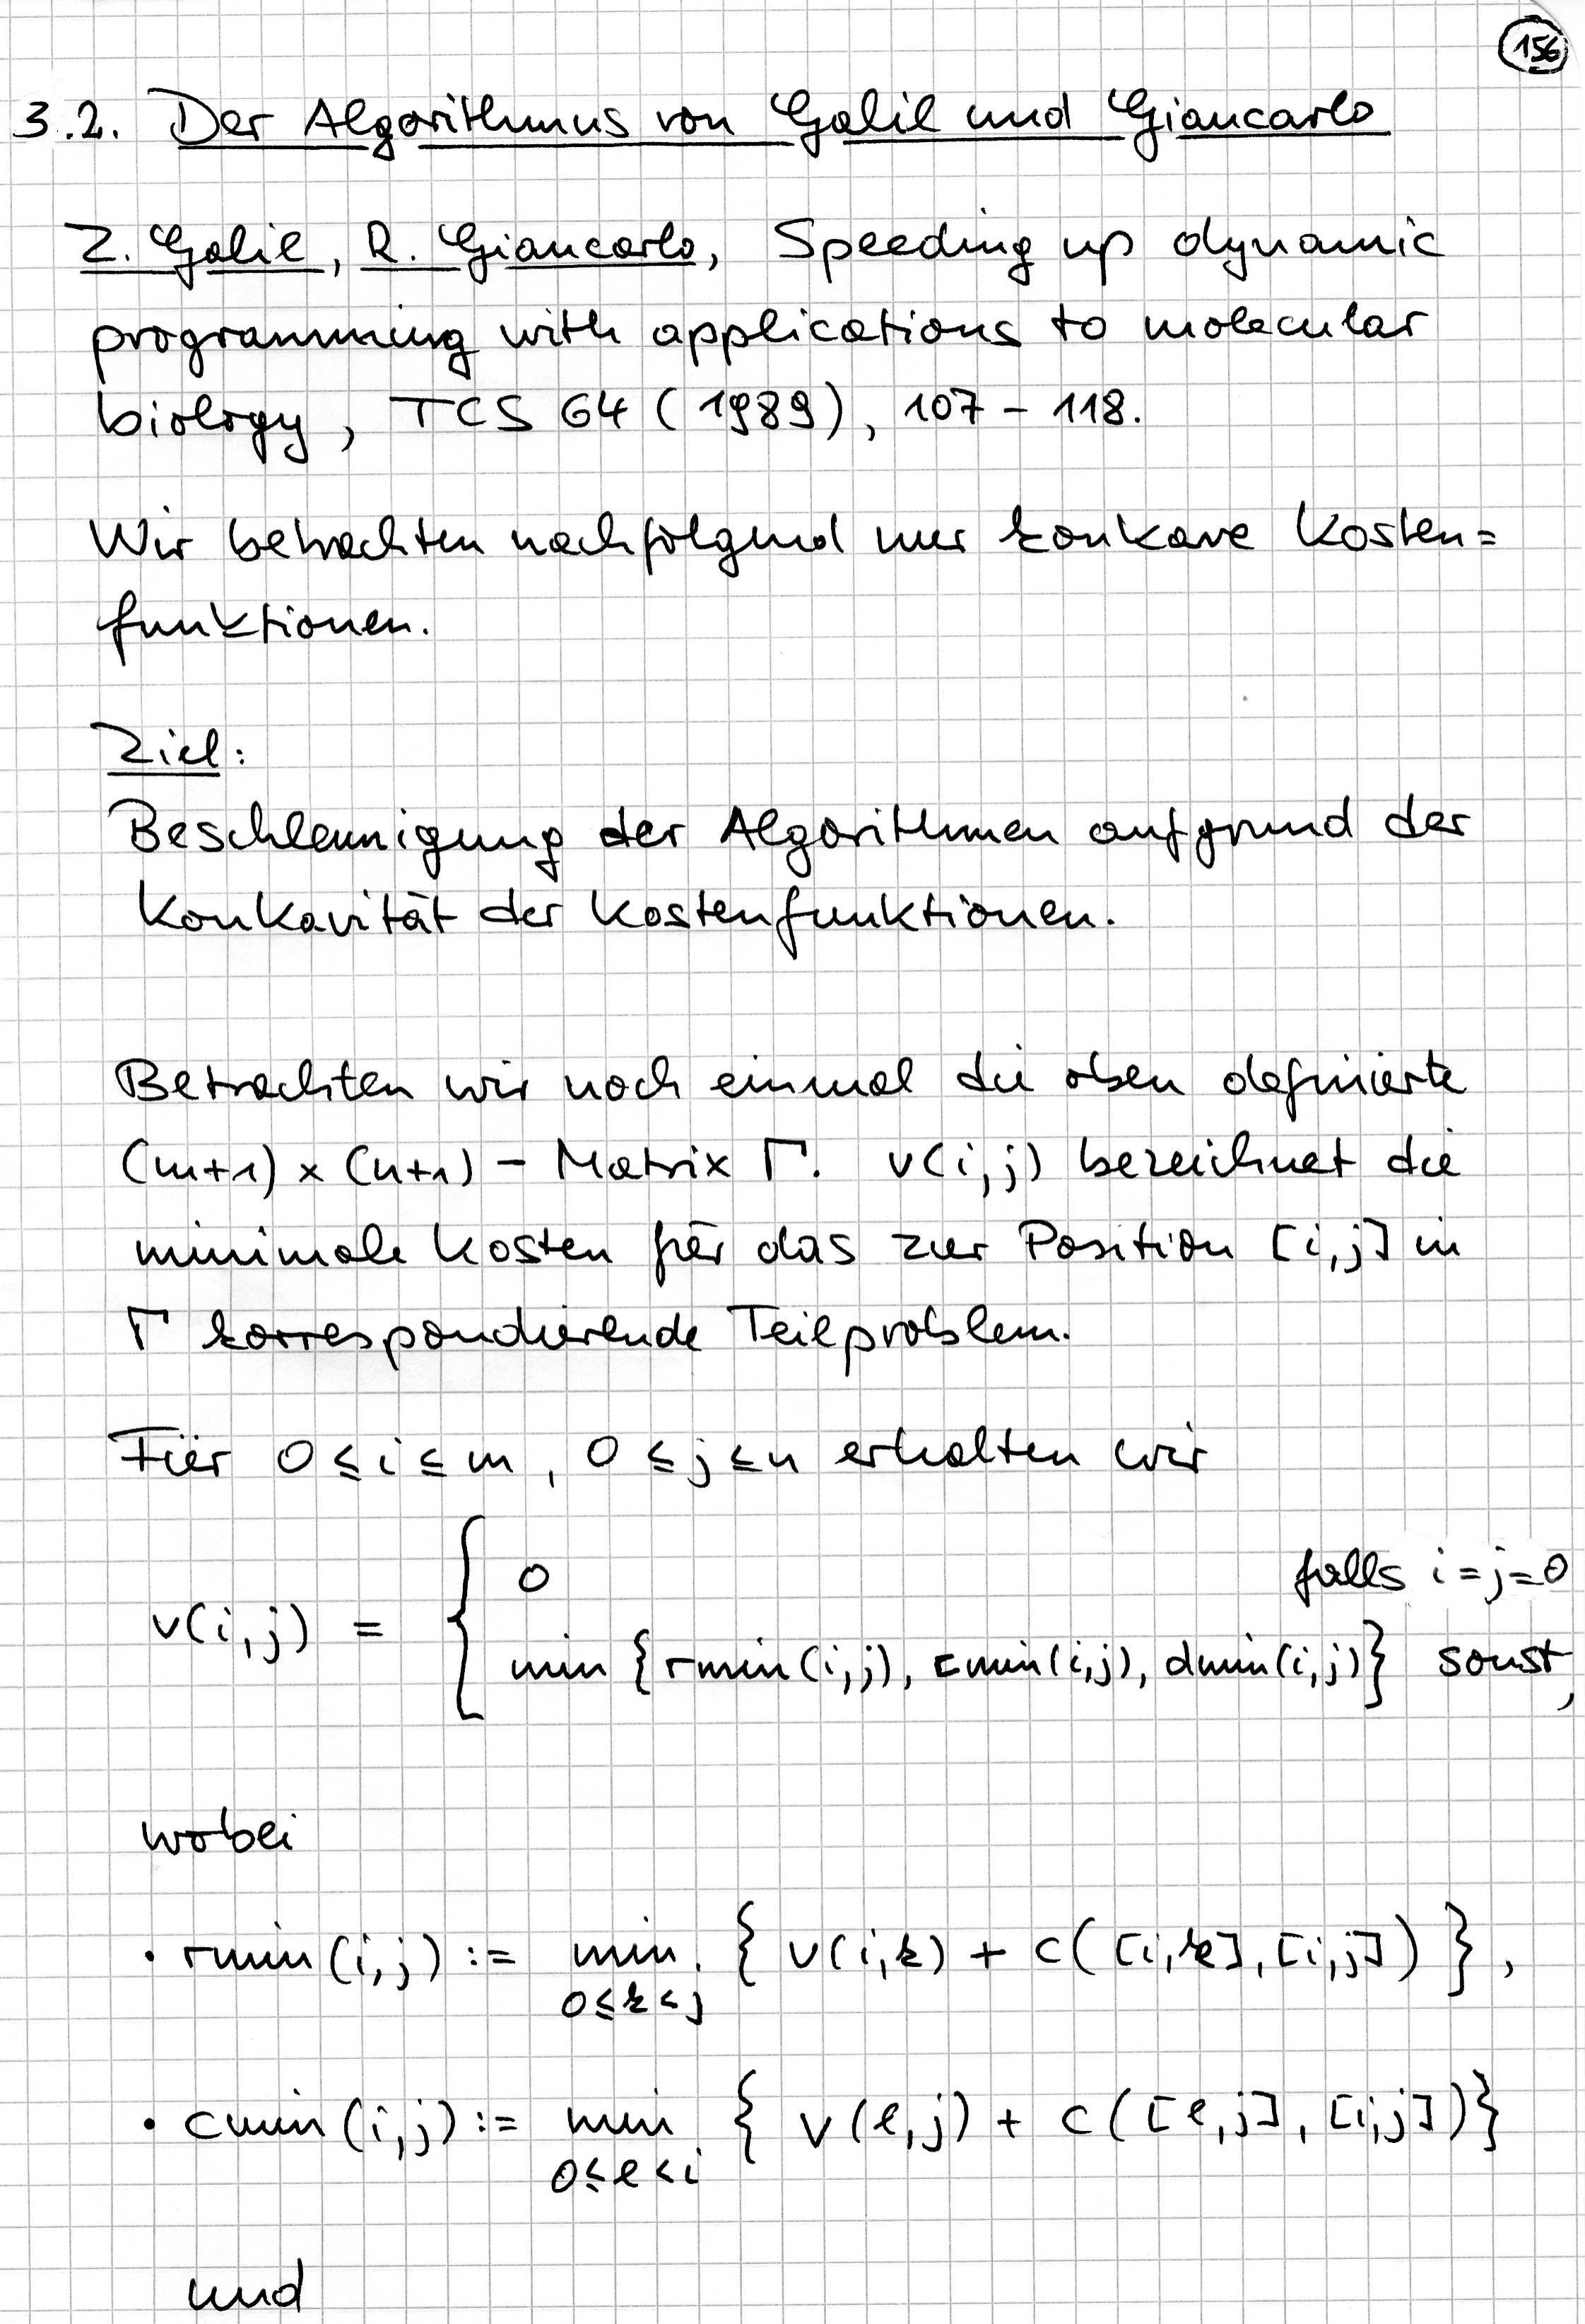 156
3.2. Der Algorithmus von Galil und Giancarlo
Z. Galil, R. Giancarlo, Speeding up dynamic
programming with applications to molecular
biology, TCS 64 (1989), 107 - 118.
Wir betrachten nachfolgend nur konkave Kosten=
funktionen.
Ziel:
Beschleunigung der Algorithmen aufgrund der
Konkavität der Kostenfunktionen.
Betrachten wir noch einmal die oben definierte
(m+1) × (n+1) - Matrix Γ. v(i,j) bezeichnet die
minimale Kosten für das zur Position [i,j] in
Γ korrespondierende Teilproblem.
Für 0 ≤ i ≤ m, 0 ≤ j ≤ n erhalten wir
v(i,j) = { 0 falls i = j = 0
min {rmin(i,j), cmin(i,j), dmin(i,j)} sonst,
wobei
• rmin(i,j) := min { v(i,k) + c([i,k],[i,j]) },
0≤k<j
• cmin(i,j) := min { v(l,j) + c([l,j],[i,j])}
0≤l<i
und